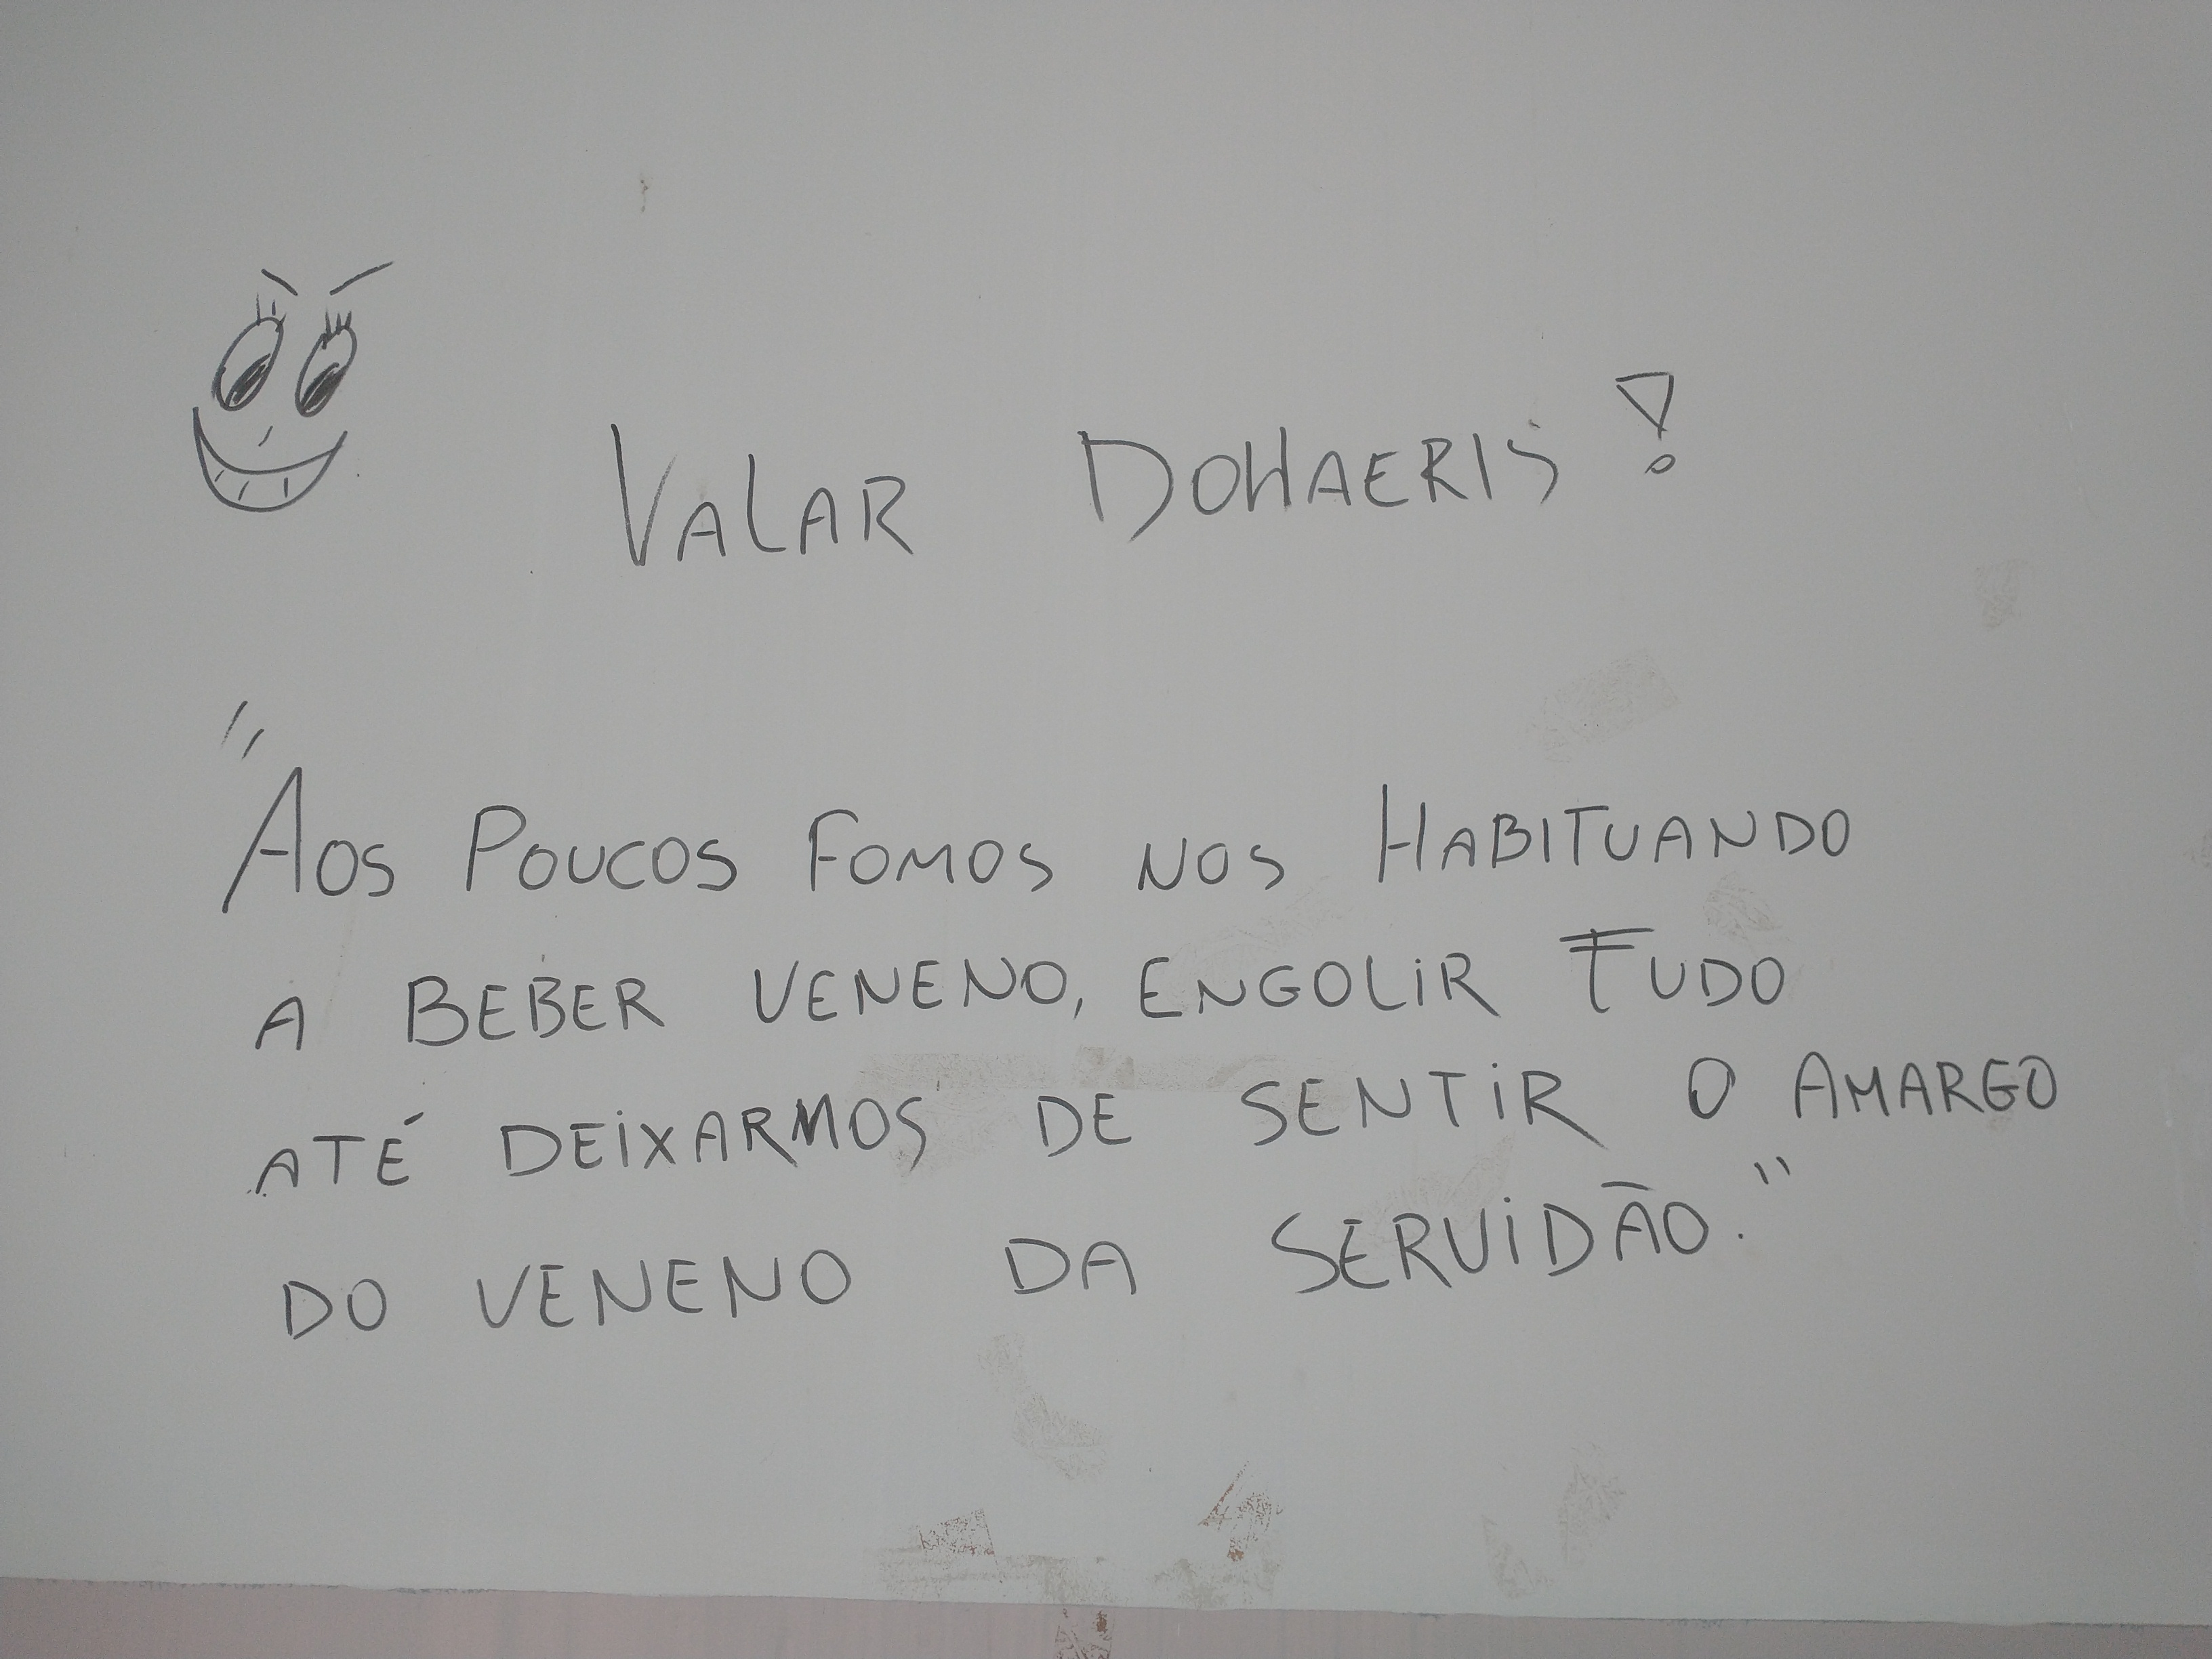 VALAR DOHAERIS!
"AOS POUCOS FOMOS NOS HABITUANDO
A BEBER VENENO, ENGOLIR TUDO
ATÉ DEIXARMOS DE SENTIR O AMARGO
DO VENENO DA SERVIDÃO."